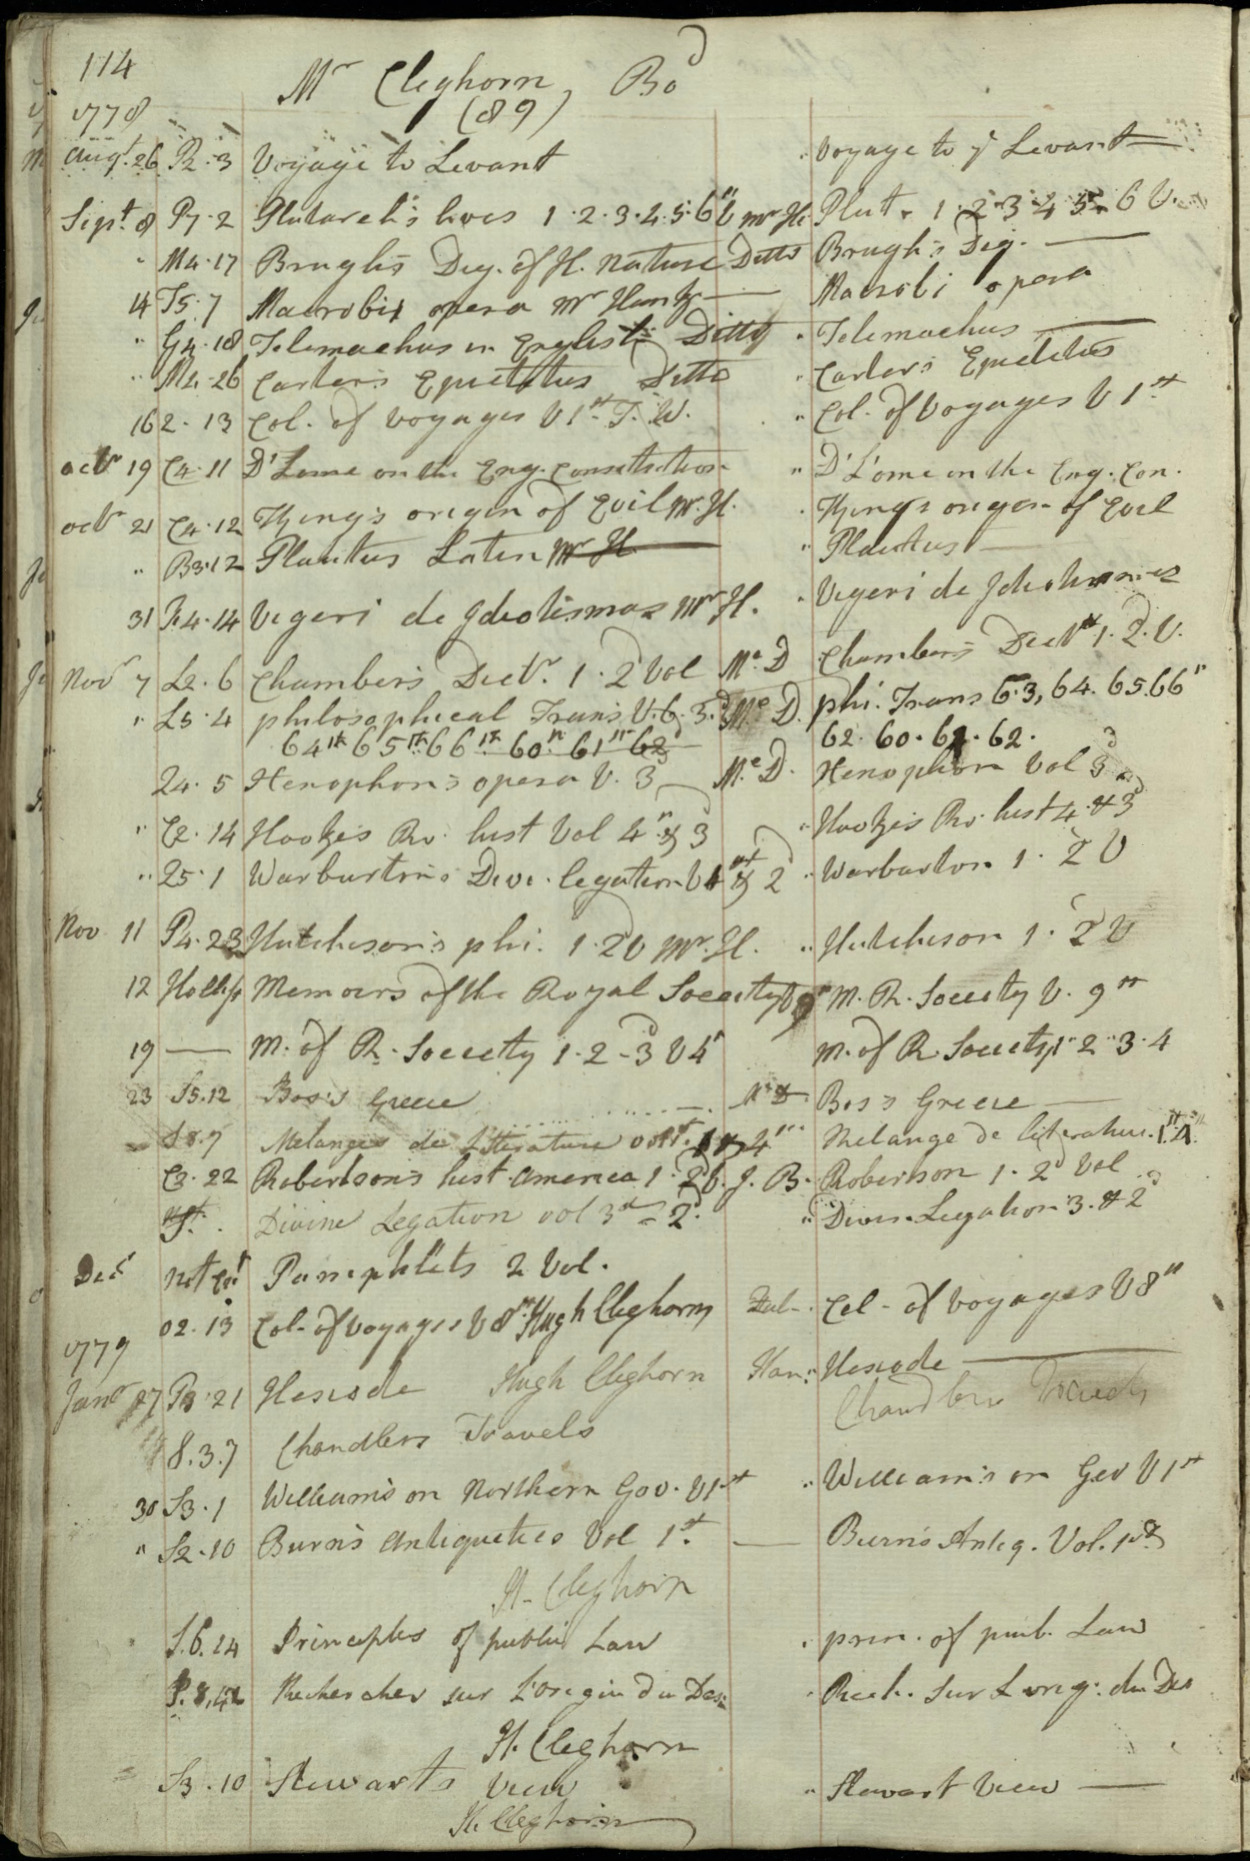 114
Mr Cleghorn, Bod
(89)
1778
Augt. 26 P2.3 Voyage to Levant " Voyage to ye Levant
Sept 8 P7.2 Plutarch's lives 1.2.3.4.5.6 V Mr H. Plut. 1.2.3 4 5. 6 V.
" M4.17 Brugh's Dig. of H. Nature Ditto Brugh's Dig.
14 T5.7 Macrobii opera Mr Hunt Macrobi opera
" G4.18 Telemachus in English Ditto " Telemachus
" M2.26 Carter's Epictetus Ditto " Carter's Epictetus
16 2.13 Col. of Voyages V 1st T. W. " Col. of Voyages V 1st
Octr 19 C4.11 D'Lome on the Eng. Constitution " D'Lome on the Eng. Con.
Octr 21 C4.12 King's origin of Evil Mr. H. King's origin of Evil
" B3.12 Plautus Latin Mr H " Plautus
31 R4.14 Vegeri de Idiotismas Mr H. " Vegeri de Idiotismes
Novr 7 L2.6 Chambers Dictr. 1. 2d Vol Mr. D Chambers Dictr 1. 2. V.
" L5.4 philosophical Trans. V. 6.3.d Mr D. phi. Trans 6.3, 64. 65. 66"
64th 65th 66th 60th 61st 62d 62. 60. 61. 62.
24.5 Xenophon's opera V. 3 Mr. D. Xenophon Vol 3d
" C2.14 Hooke's Ro. hist Vol 4th & 3d " Hooke's Ro. hist 4. & 3d
" 25.1 Warburton's Divi. legation V 1st & 2d " Warburton 1. 2 V
Nov 11 P4.23 Hutcheson's phi. 1. 2 V Mr. H. " Hutcheson 1. 2 V
12 Memoirs of the Royal Society V 9 " M. R. Society V. 9th
19 — M. of R. Society 1. 2 - 3d V 4 M. of R. Society 1 " 2 " 3. 4
23 S5.12 Bos's Greece Mr D. Bos's Greece
S8.7 Melanges de Litterature vol 1st. & 4 Melange de literature. 1. 4
C3.22 Robertson's hist America 1. 2d V. J. B. Robertson 1. 2d Vol
Divine Legation vol 3d - 2d. " Divin. Legation 3. & 2d
Decr Not Cat Pamphlets 2 Vol.
02.13 Col. of Voyages V 8th Hugh Cleghorn Col - of Voyages V 8th
1779
Janr 27 P3.21 Hesiode Hugh Cleghorn " Hesiode
8.3.7 Chandlers Travels Chandlers Travels
30 S3.1 Williams on Northern Gov. V 1st " Williams on Gov V 1st
" S2.10 Burn's Antiqueties Vol 1st. Burn's Antiq. Vol. 1st
H. Cleghorn
S.6.24 Principles of public Law " prin. of pub. Law
P.8,42 Recherches sur L'Origin du Des: " Rech. sur L orig: du Des
H. Cleghorn
S3.10 Stewarts View " Stewart View
H. Cleghorn